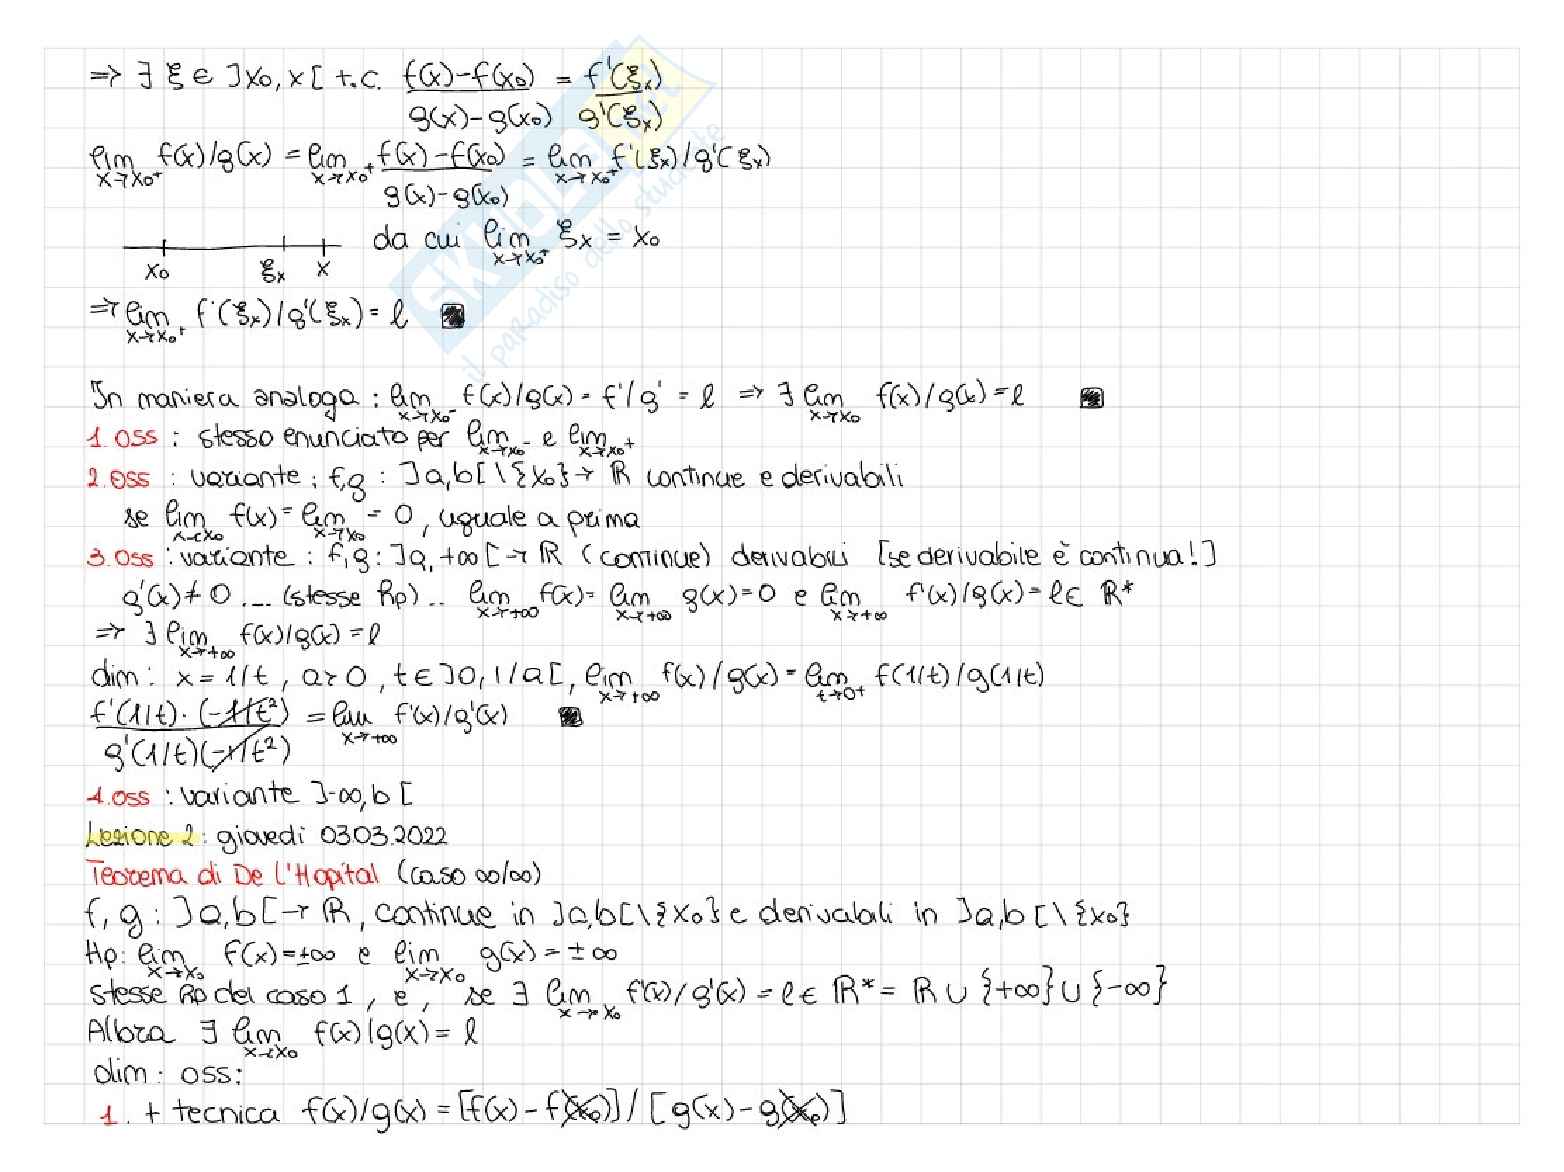 => ∃ ξ ∈ ]x₀, x[ t.c. f(x)-f(x₀) = f'(ξₓ)
g(x)-g(x₀) g'(ξₓ)
lim x→x₀⁺ f(x)/g(x) = lim x→x₀⁺ f(x)-f(x₀) = lim x→x₀⁺ f'(ξₓ)/g'(ξₓ)
g(x)-g(x₀)
da cui lim x→x₀⁺ ξₓ = x₀
x₀ ξₓ x
=> lim x→x₀⁺ f'(ξₓ)/g'(ξₓ) = ℓ
In maniera analoga : lim x→x₀⁻ f(x)/g(x) = f'/g' = ℓ => ∃ lim x→x₀ f(x)/g(x) = ℓ
1. oss : stesso enunciato per lim x→x₀⁻ e lim x→x₀⁺
2. oss : variante : f,g : ]a,b[ \ {x₀} → ℝ continue e derivabili
se lim x→x₀ f(x) = lim x→x₀ = 0, uguale a prima
3. Oss : variante : f,g : ]a, +∞[ → ℝ (continue) derivabili [se derivabile è continua!]
g'(x) ≠ 0 ... (stesse hp) .. lim x→+∞ f(x) = lim x→+∞ g(x) = 0 e lim x→+∞ f'(x)/g(x) = ℓ ∈ ℝ*
=> ∃ lim x→+∞ f(x)/g(x) = ℓ
dim : x = 1/t, a>0, t ∈ ]0, 1/a[, lim x→+∞ f(x)/g(x) = lim t→0⁺ f(1/t)/g(1/t)
f'(1/t)·(-1/t²) = lim x→+∞ f'(x)/g'(x)
g'(1/t)(-1/t²)
4. oss : variante ]-∞, b[
Lezione 2 : giovedì 03.03.2022
Teorema di De L'Hopital (caso ∞/∞)
f, g : ]a,b[ → ℝ, continue in ]a,b[\{x₀} e derivabili in ]a,b[\{x₀}
Hp: lim x→x₀ f(x) = ±∞ e lim x→x₀ g(x) = ±∞
stesse hp del caso 1, e, se ∃ lim x→x₀ f'(x)/g'(x) = ℓ ∈ ℝ* = ℝ ∪ {+∞} ∪ {-∞}
Allora ∃ lim x→x₀ f(x)/g(x) = ℓ
dim : oss:
1. + tecnica f(x)/g(x) = [f(x) - f(x₀)] / [g(x) - g(x₀)]
SKUOLA.net
il paradiso dello studente